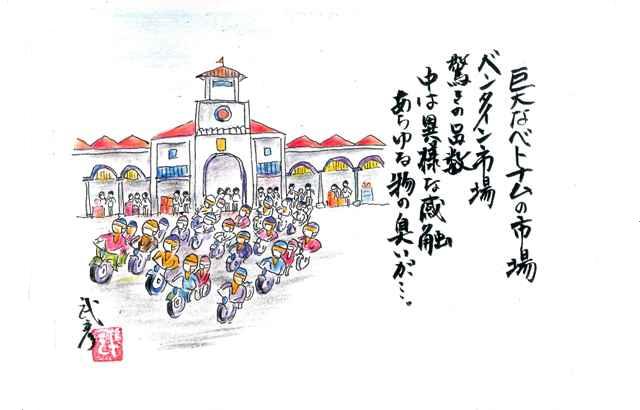 巨大なベトナムの市場
ベンタイン市場
驚きの品数
中は異様な感触
あらゆる物の臭いが…。
武彦